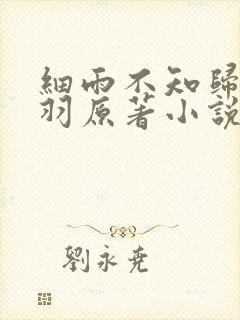 細雨不知歸
羽原著小說
劉永堯